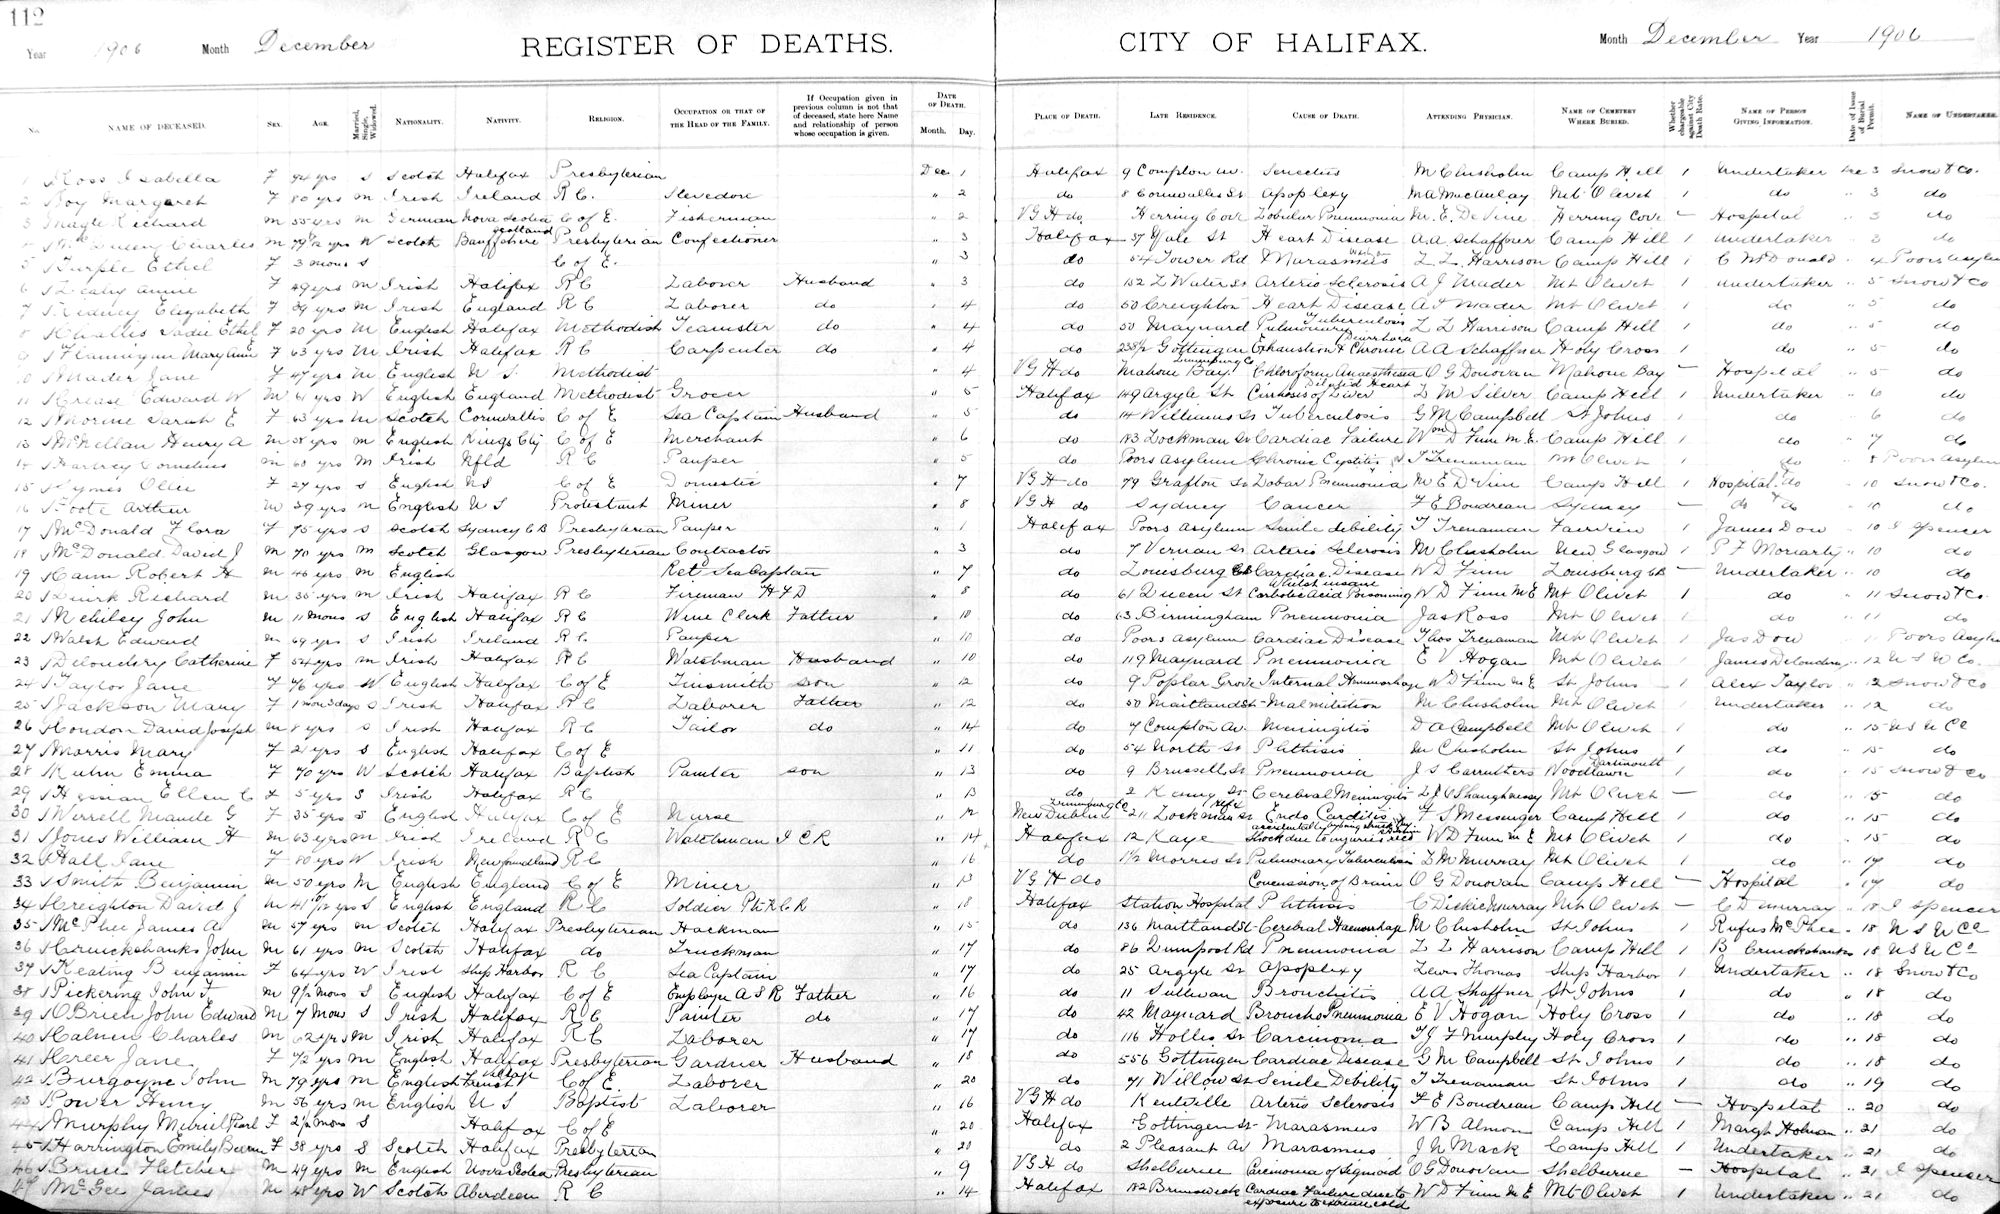 112
Year 1906 Month December REGISTER OF DEATHS. CITY OF HALIFAX. Month December Year 1906
No. NAME OF DECEASED. SEX. AGE. Married, Single, Widowed. NATIONALITY. NATIVITY. RELIGION. OCCUPATION OR THAT OF THE HEAD OF THE FAMILY. If Occupation given in previous column is not that of deceased, state here Name and relationship of person whose occupation is given. DATE OF DEATH. Month. Day. PLACE OF DEATH. LATE RESIDENCE. CAUSE OF DEATH. ATTENDING PHYSICIAN. NAME OF CEMETERY WHERE BURIED. Whether chargeable against City Death Rate. NAME OF PERSON GIVING INFORMATION. Date of Issue of Burial Permit. NAME OF UNDERTAKER.
1 Ross Isabella F 94 yrs S Scotch Halifax Presbyterian Dec 1 Halifax 9 Compton Av. Senectus M Chisholm Camp Hill 1 Undertaker Dec 3 Snow & Co.
2 Margaret F 80 yrs M Irish Ireland R C. Stevedore " 2 do 8 Cornwallis St Apoplexy M A MacAulay Mt Olivet 1 do " 3 do
3 Nagle Richard M 55 yrs M German Nova Scotia C of E. Fisherman " 2 V G H do Herring Cove Lobular Pneumonia M. E. DeVine Herring Cove — Hospital " 3 do
4 Charles M 79 yrs W Scotch Banffshire Scotland Presbyterian Confectioner " 3 Halifax 37 Yale St Heart Disease A A Schaffner Camp Hill 1 Undertaker " 3 do
5 Ethel F 3 mons S C of E. " 3 do 54 Tower Rd Marasmus L L. Harrison Camp Hill 1 C McDonald " 4 Poors Asylum
6 Annie F 49 yrs M Irish Halifax R C Laborer Husband " 3 do 152 L Water St Arterio Sclerosis A J Mader Mt Olivet 1 Undertaker " 5 Snow & Co
7 Elizabeth F 39 yrs M Irish England R C Laborer do " 4 do 50 Creighton Heart Disease A J Mader Mt Olivet 1 do " 5 do
8 Sadie Ethel F 20 yrs M English Halifax Methodist Teamster do " 4 do 50 Maynard Pulmonary Tuberculosis L L Harrison Camp Hill 1 do " 5 do
9 Flannigan Mary Ann E F 63 yrs M Irish Halifax R C Carpenter do " 4 do 238½ Gottingen Exhaustion & Chronic Diarrhoea A A Schaffner Holy Cross 1 do " 5 do
10 Mader Jane F 47 yrs M English N S Methodist " 4 V G H do Mahone Bay Lunenburg Co Chloroform Anaesthesia Dilated Heart O G Donovan Mahone Bay — Hospital " 5 do
11 Edward W M 61 yrs W English England Methodist Grocer " 5 Halifax 149 Argyle St Cirrhosis of Liver L M Silver Camp Hill 1 Undertaker " 6 do
12 Morine Sarah E F 63 yrs M Scotch Cornwallis C of E Sea Captain Husband " 5 do 14 Williams St Tuberculosis G M Campbell St Johns 1 do " 6 do
13 McKellan Henry A M 58 yrs M English Kings Cty C of E Merchant " 6 do 183 Lockman St Cardiac Failure Wm D Finn M.E. Camp Hill 1 do " 7 do
14 Cornelius M 60 yrs M Irish Nfld R C Pauper " 5 do Poors Asylum Chronic Cystitis T Trenaman Mt Olivet 1 do " 8 Poors Asylum
15 Symes Ollie F 27 yrs S English NS C of E Domestic " 7 V G H do 79 Grafton St Lobar Pneumonia M E DeVine Camp Hill 1 Hospital do " 10 Snow & Co.
16 Foote Arthur M 39 yrs M English N S Protestant Miner " 8 V G H do Sydney Cancer F E Boudreau Sydney — do do " 10 do
17 McDonald Flora F 75 yrs S Scotch Sydney C B Presbyterian Pauper " 1 Halifax Poors Asylum Senile debility T Trenaman Fairview 1 James Dow " 10 J Spencer
18 McDonald David J M 70 yrs M Scotch Glasgow Presbyterian Contractor " 3 do 7 Vernan St Arterio Sclerosis M Chisholm New Glasgow 1 P F Moriarty " 10 do
19 Cann Robert H M 46 yrs M English Retd Sea Captain " 7 do Louisburg CB Cardiac Disease W D Finn Louisburg CB — Undertaker " 10 do
20 Quirk Richard M 35 yrs M Irish Halifax R C Fireman H F D " 8 do 61 Queen St Carbolic Acid Poisoning Whilst insane W D Finn M E Mt Olivet 1 do " 11 Snow & Co.
21 John M 11 mons S English Halifax R C Wine Clerk Father " 10 do 63 Birmingham Pneumonia Jas Ross Mt Olivet 1 do " 11 do
22 Walsh Edward M 69 yrs S Irish Ireland R C. Pauper " 10 do Poors Asylum Cardiac Disease Thos Trenaman Mt Olivet 1 Jas Dow " 11 Poors Asylum
23 Deloughry Catherine F 54 yrs M Irish Halifax R C Watchman Husband " 10 do 119 Maynard Pneumonia E V Hogan Mt Olivet 1 James Deloughry " 12 N S U Co.
24 Taylor Jane F 76 yrs W English Halifax C of E Tinsmith son " 12 do 9 Poplar Grove Internal Hemorrhage W D Finn M E St Johns 1 Alex Taylor " 12 Snow & Co
25 Jackson Mary F 1 mon 3 days S Irish Halifax R C Laborer Father " 12 do 50 Maitland St Malnutrition M Chisholm Mt Olivet 1 Undertaker " 12 do
26 Condon David Joseph M 8 yrs S Irish Halifax R C Tailor do " 14 do 7 Compton Av. Meningitis D A Campbell Mt Olivet 1 do " 15 N S U Co
27 Morris Mary F 21 yrs S English Halifax C of E " 11 do 54 North St Phthisis M Chisholm St Johns 1 do " 15 do
28 Kuhn Emma F 70 yrs W Scotch Halifax Baptist Painter son " 13 do 9 Brussell St Pneumonia J S Carruthers Woodlawn Dartmouth 1 do " 15 Snow & Co
29 Ellen C F 5 yrs S Irish Halifax R C " 13 do 2 Kenny St Cerebral Meningitis L J O'Shaughnessy Mt Olivet — do " 15 do
30 Werrell Maude G F 35 yrs S English Halifax C of E Nurse " 12 New Dublin Lunenburg Co 211 Lockman St Hfx Endo Carditis F S Messenger Camp Hill 1 do " 15 do
31 Jones William H M 63 yrs M Irish Ireland R C Watchman I C R " 14 Halifax 12 Kaye Shock due to injuries recd accidentally W D Finn M E Mt Olivet 1 do " 15 do
32 Hall Jane F 80 yrs W Irish Newfoundland R C " 16 do 1½ Morris St Pulmonary Tuberculosis L M Murray Mt Olivet 1 do " 17 do
33 Smith Benjamin M 50 yrs M English England C of E Miner " 13 V G H do Concussion of Brain O G Donovan Camp Hill — Hospital " 17 do
34 Creighton David J M 41 yrs S English England R C Soldier Pte R C R " 18 Halifax Station Hospital Phthisis C Dickie Murray Mt Olivet — C D Murray " 18 J Spencer
35 McPhee James A M 57 yrs M Scotch Halifax Presbyterian Hackman " 15 do 136 Maitland St Cerebral Haemorrhage M Chisholm St Johns 1 Rufus McPhee " 18 N S U Co
36 Cruickshanks John M 61 yrs M Scotch Halifax do Truckman " 17 do 86 Dunpool Rd Pneumonia L L Harrison Camp Hill 1 B Cruickshanks " 18 N S U Co
37 Keating Benjamin F 64 yrs W Irish Ship Harbor R C Sea Captain " 17 do 25 Argyle St Apoplexy Lewis Thomas Ship Harbor 1 Undertaker " 18 Snow & Co
38 Pickering John F M 9½ mons S English Halifax C of E Employee A S R Father " 16 do 11 Sullivan Bronchitis A A Shaffner St Johns 1 do " 18 do
39 O'Brien John Edward M 7 mons S Irish Halifax R C Painter do " 17 do 42 Maynard Broncho Pneumonia E V Hogan Holy Cross 1 do " 18 do
40 Charles M 62 yrs M Irish Halifax R C Laborer " 17 do 116 Hollis St Carcinoma T J F Murphy Holy Cross 1 do " 18 do
41 Greer Jane F 72 yrs M English Halifax Presbyterian Gardner Husband " 18 do 556 Gottingen Cardiac Disease G M Campbell St Johns 1 do " 18 do
42 Burgoyne John M 79 yrs M English French Village C of E. Laborer " 20 do 71 Willow St Senile Debility T Trenaman St Johns 1 do " 19 do
43 Power Henry M 56 yrs M English N S Baptist Laborer " 16 V G H do Kentville Arterio Sclerosis F E Boudreau Camp Hill — Hospital " 20 do
44 Murphy Muriel Pearl F 2½ mons S Halifax C of E " 20 Halifax Gottingen St Marasmus W B Almon Camp Hill 1 Margt Holman " 21 do
45 Harrington Emily F 38 yrs S Scotch Halifax Presbyterian " 20 do 2 Pleasant Av Marasmus J N Mack Camp Hill 1 Undertaker " 21 do
46 Bruce Fletcher M 49 yrs M English Nova Scotia Presbyterian " 9 V G H do Shelburne Carcinoma of Sigmoid O G Donovan Shelburne — Hospital " 21 J Spencer
47 McGee James M 48 yrs W Scotch Aberdeen R C " 14 Halifax 182 Brunswick Cardiac Failure due to exposure to extreme cold W D Finn M E Mt Olivet 1 Undertaker " 21 do